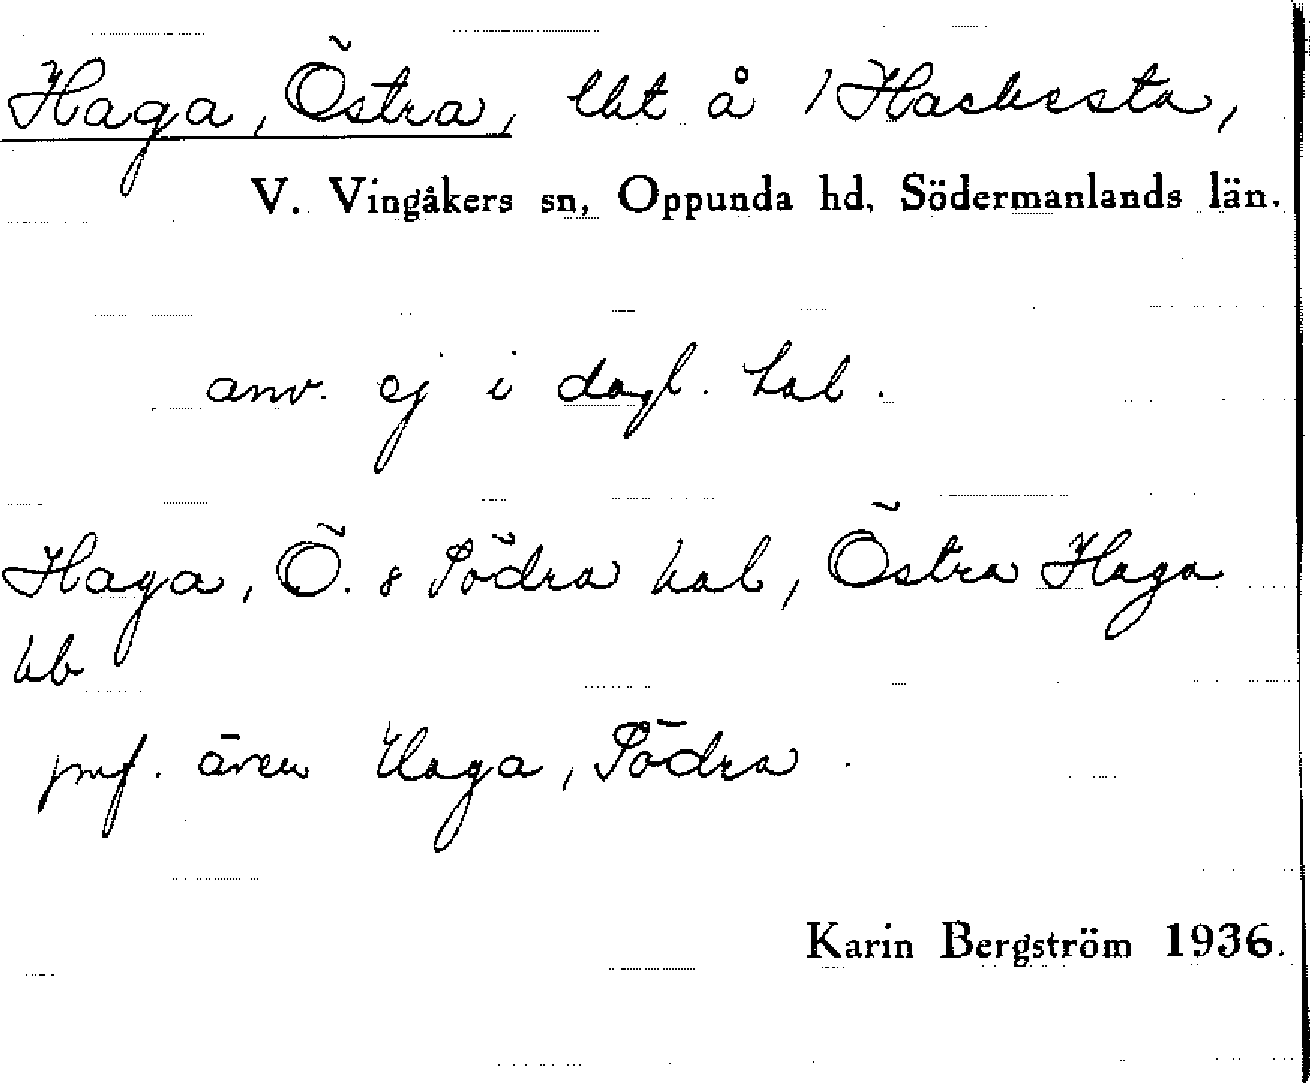 Haga, Östra, lht å /Hacksta,
V. Vingåkers sn, Oppunda hd, Södermanlands län.
anv. ej i dagl. tal.
Haga, Ö. & Södra hal, Östra Haga
kb
jmf. även Haga, Södra.
Karin Bergström 1936.